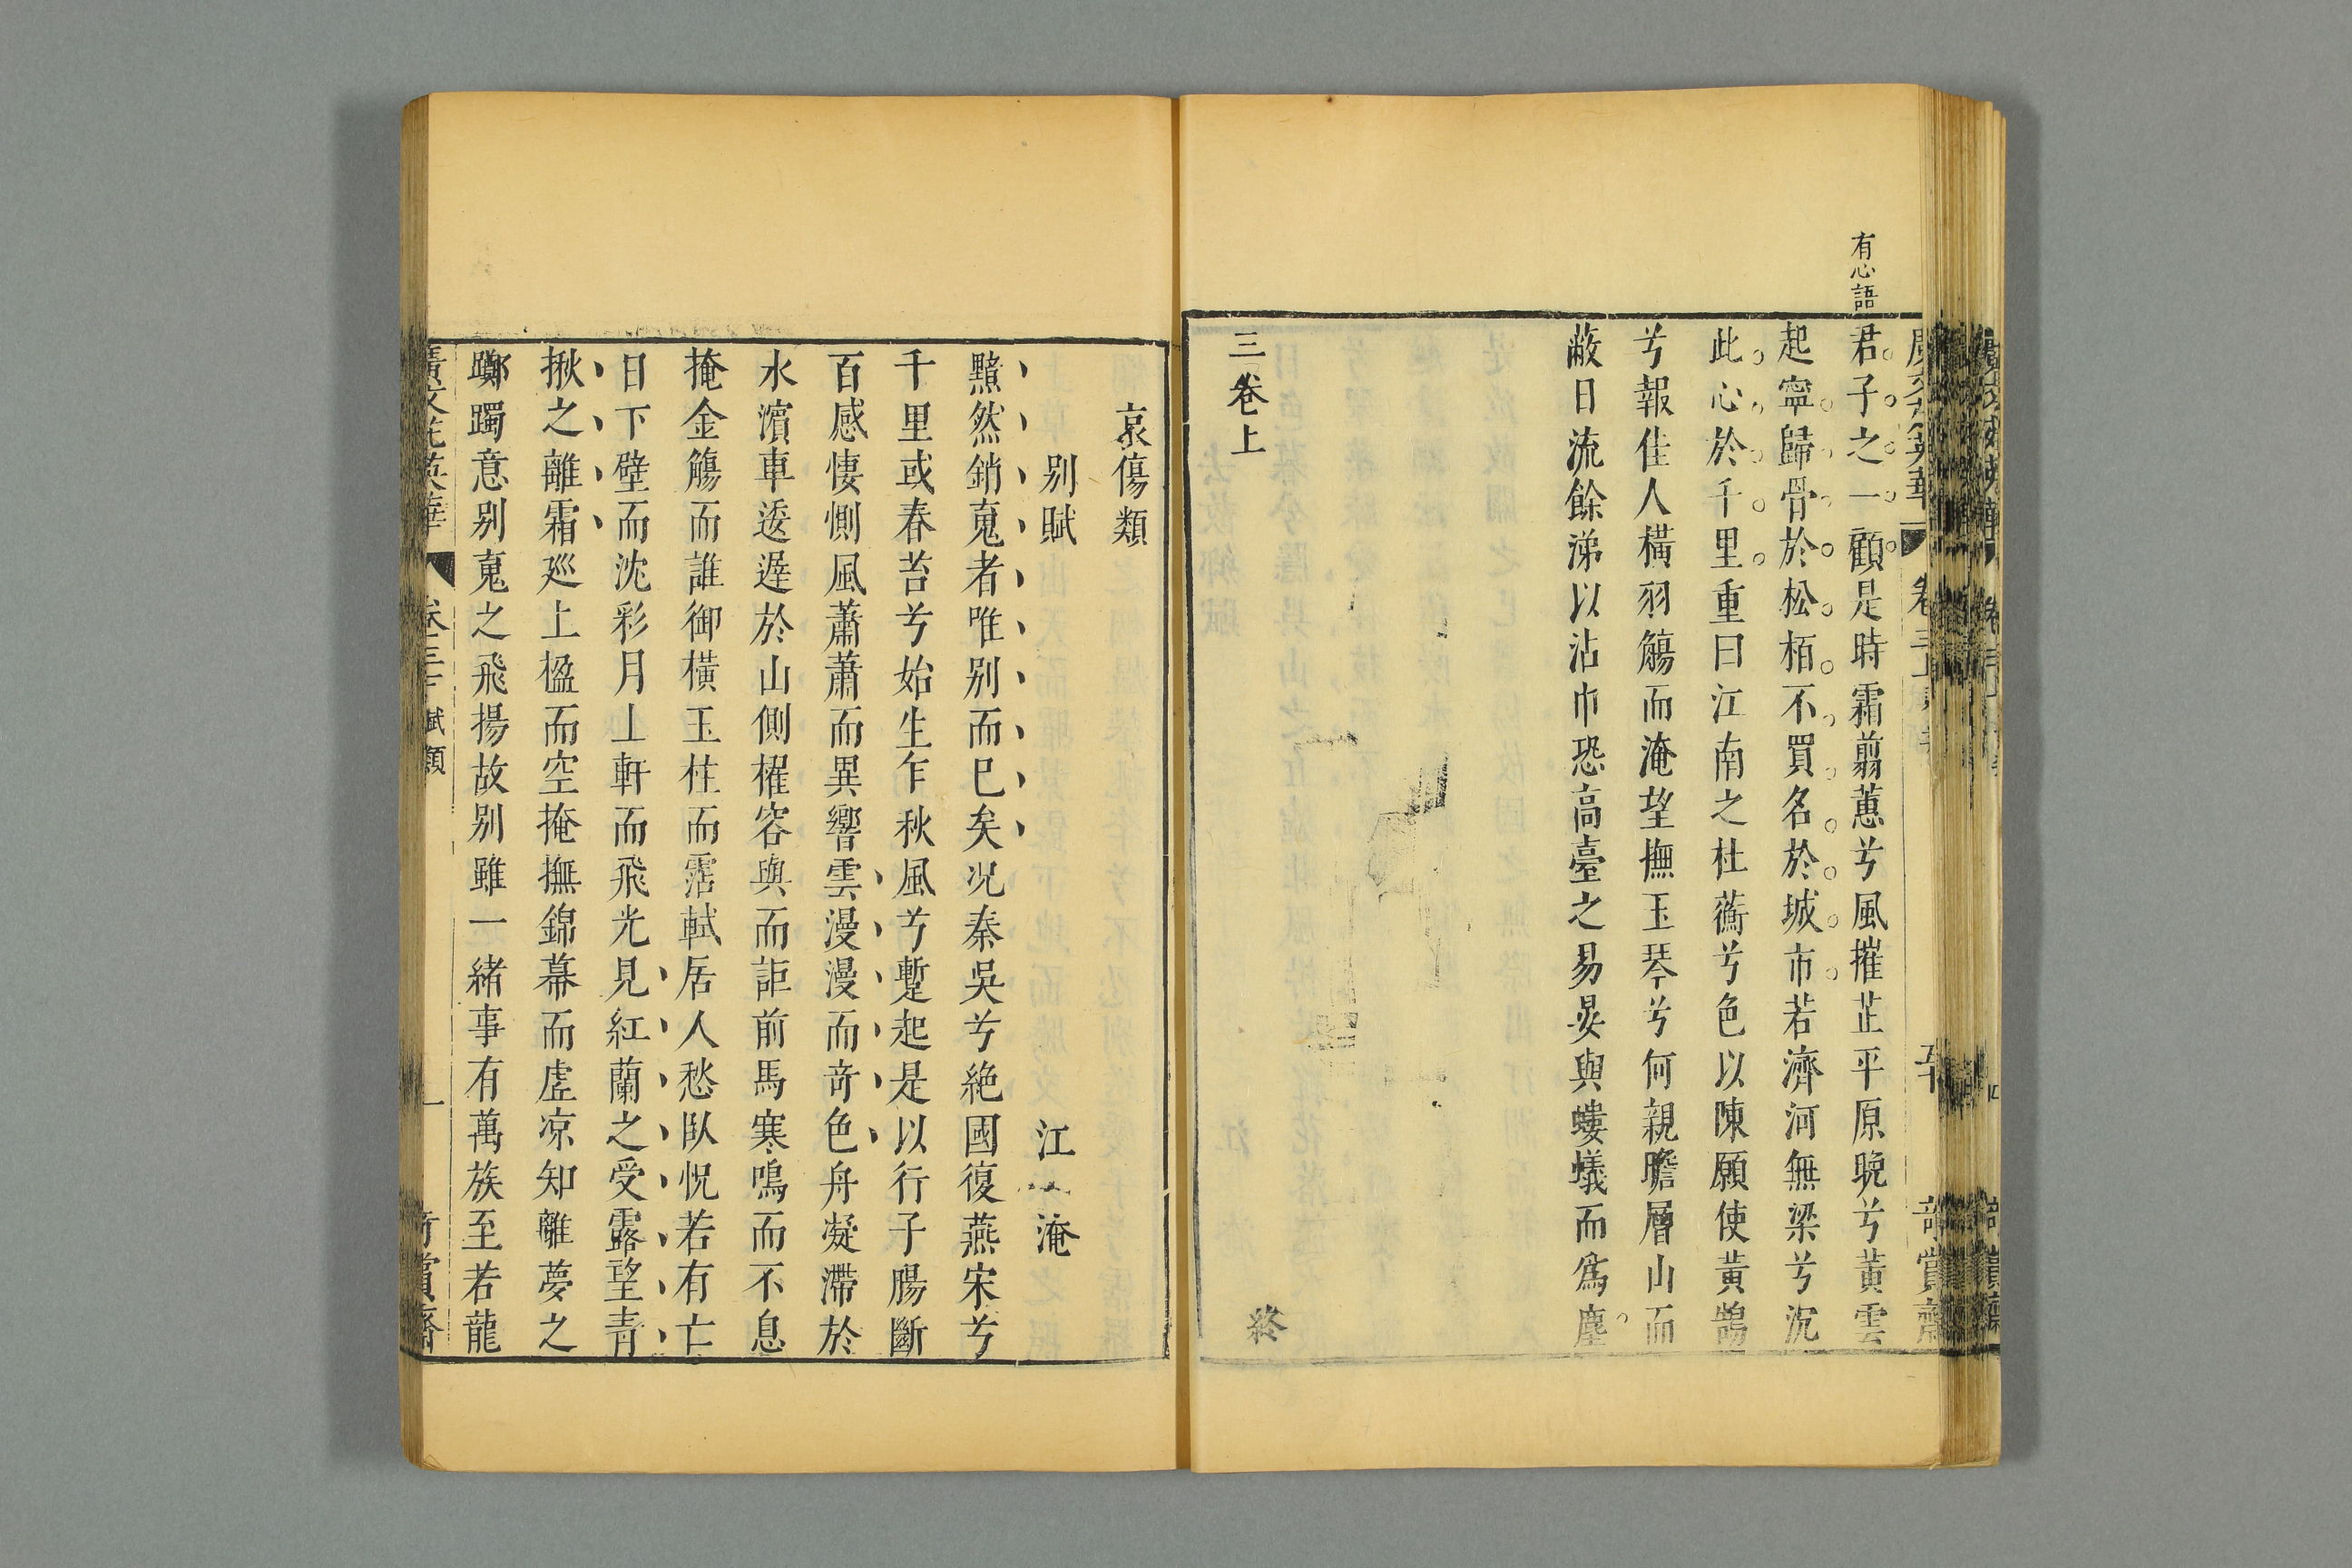 有心語
君子之一顧是時霜翦蕙兮風摧芷平原晚兮黃雲
起寧歸骨於松栢不買名於城市若濟河無梁兮沉
此心於千里重曰江南之杜蘅兮色以陳願使黃鵠
兮報佳人橫羽觴而淹望撫玉琴兮何親瞻層山而
蔽日流餘涕以沾巾恐高臺之易晏與螻蟻而爲塵
三卷上 終
哀傷類
别賦 江淹
黯然銷䰟者唯别而巳矣况秦吳兮絶國復燕宋兮
千里或春苔兮始生乍秋風兮蹔起是以行子腸斷
百感悽惻風蕭蕭而異響雲漫漫而竒色舟凝滯於
水濱車逶遲於山側櫂容與而詎前馬寒鳴而不息
掩金觴而誰御橫玉柱而霑軾居人愁臥怳若有亡
日下壁而沈彩月上軒而飛光見紅蘭之受露望青
揪之離霜廵上楹而空掩撫錦幕而虛凉知離夢之
躑躅意别䰟之飛揚故别雖一緒事有萬族至若龍
廣文苑英華 卷三 賦類 一 竒賞齋